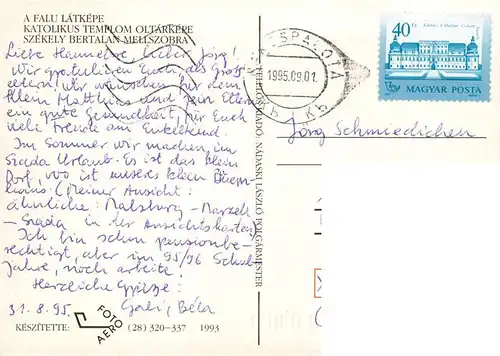 A FALU LÁTKÉPE
KATOLIKUS TEMPLOM OLTÁRKÉPE
SZÉKELY BERTALAN MELLSZOBRA
Liebe Hannelore, lieber Jörg!
Wir gratulieren Euch, als Gross-
eltern! Wir wünschen für dem
klein Matthias und sein Eltern
ein gute Gesundheit, für Euch
viele Freude am Enkelkind.
Im Sommer wir machen, im
Szada Urlaub. Es ist das klein
Dorf, wo ist unseres klein
(Meiner Ansicht:
ähnliche: Malsburg-Marzell
- Szada in der Ansichtskarten)
Ich bin schon pensionbe-
rechtigt, aber im 95/96 Schul-
jahre, noch arbeite!
Herzliche Grüsse:
31.8.95. Gabi, Béla
KÉSZÍTETTE: FOTO AERO (28) 320-337 1993
FELELŐS KIADÓ: NÁDASKI LÁSZLÓ POLGÁRMESTER
1995.09.01.
40 Ft
MAGYAR POSTA
Jörg Schmiedichen